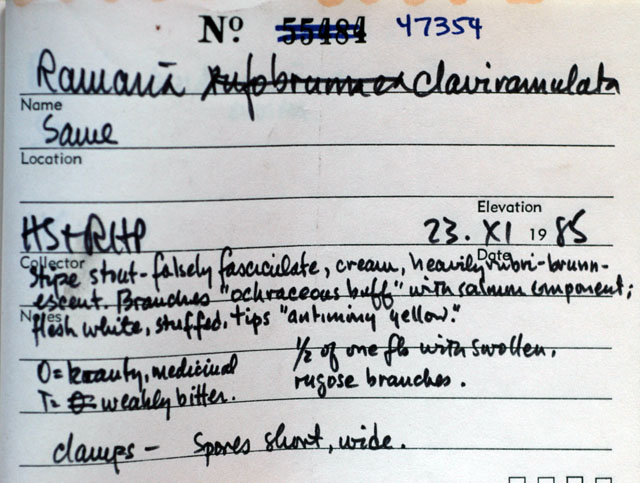 Nº 55484 47354
Ramaria rufobrunnea claviramulata
Name
Same
Location
Elevation
HS + RHP 23. XI 1985
Collector Date
Stipe strict-falsely fasciculate, cream, heavily rubri-brunn-
escent. Branches "ochraceous buff" with salmon component;
Notes
flesh white, stuffed, tips "antimony yellow."
O= beauty, medicinal
T= weakly bitter.
1/2 of one fb with swollen,
rugose branches.
clamps - Spores short, wide.